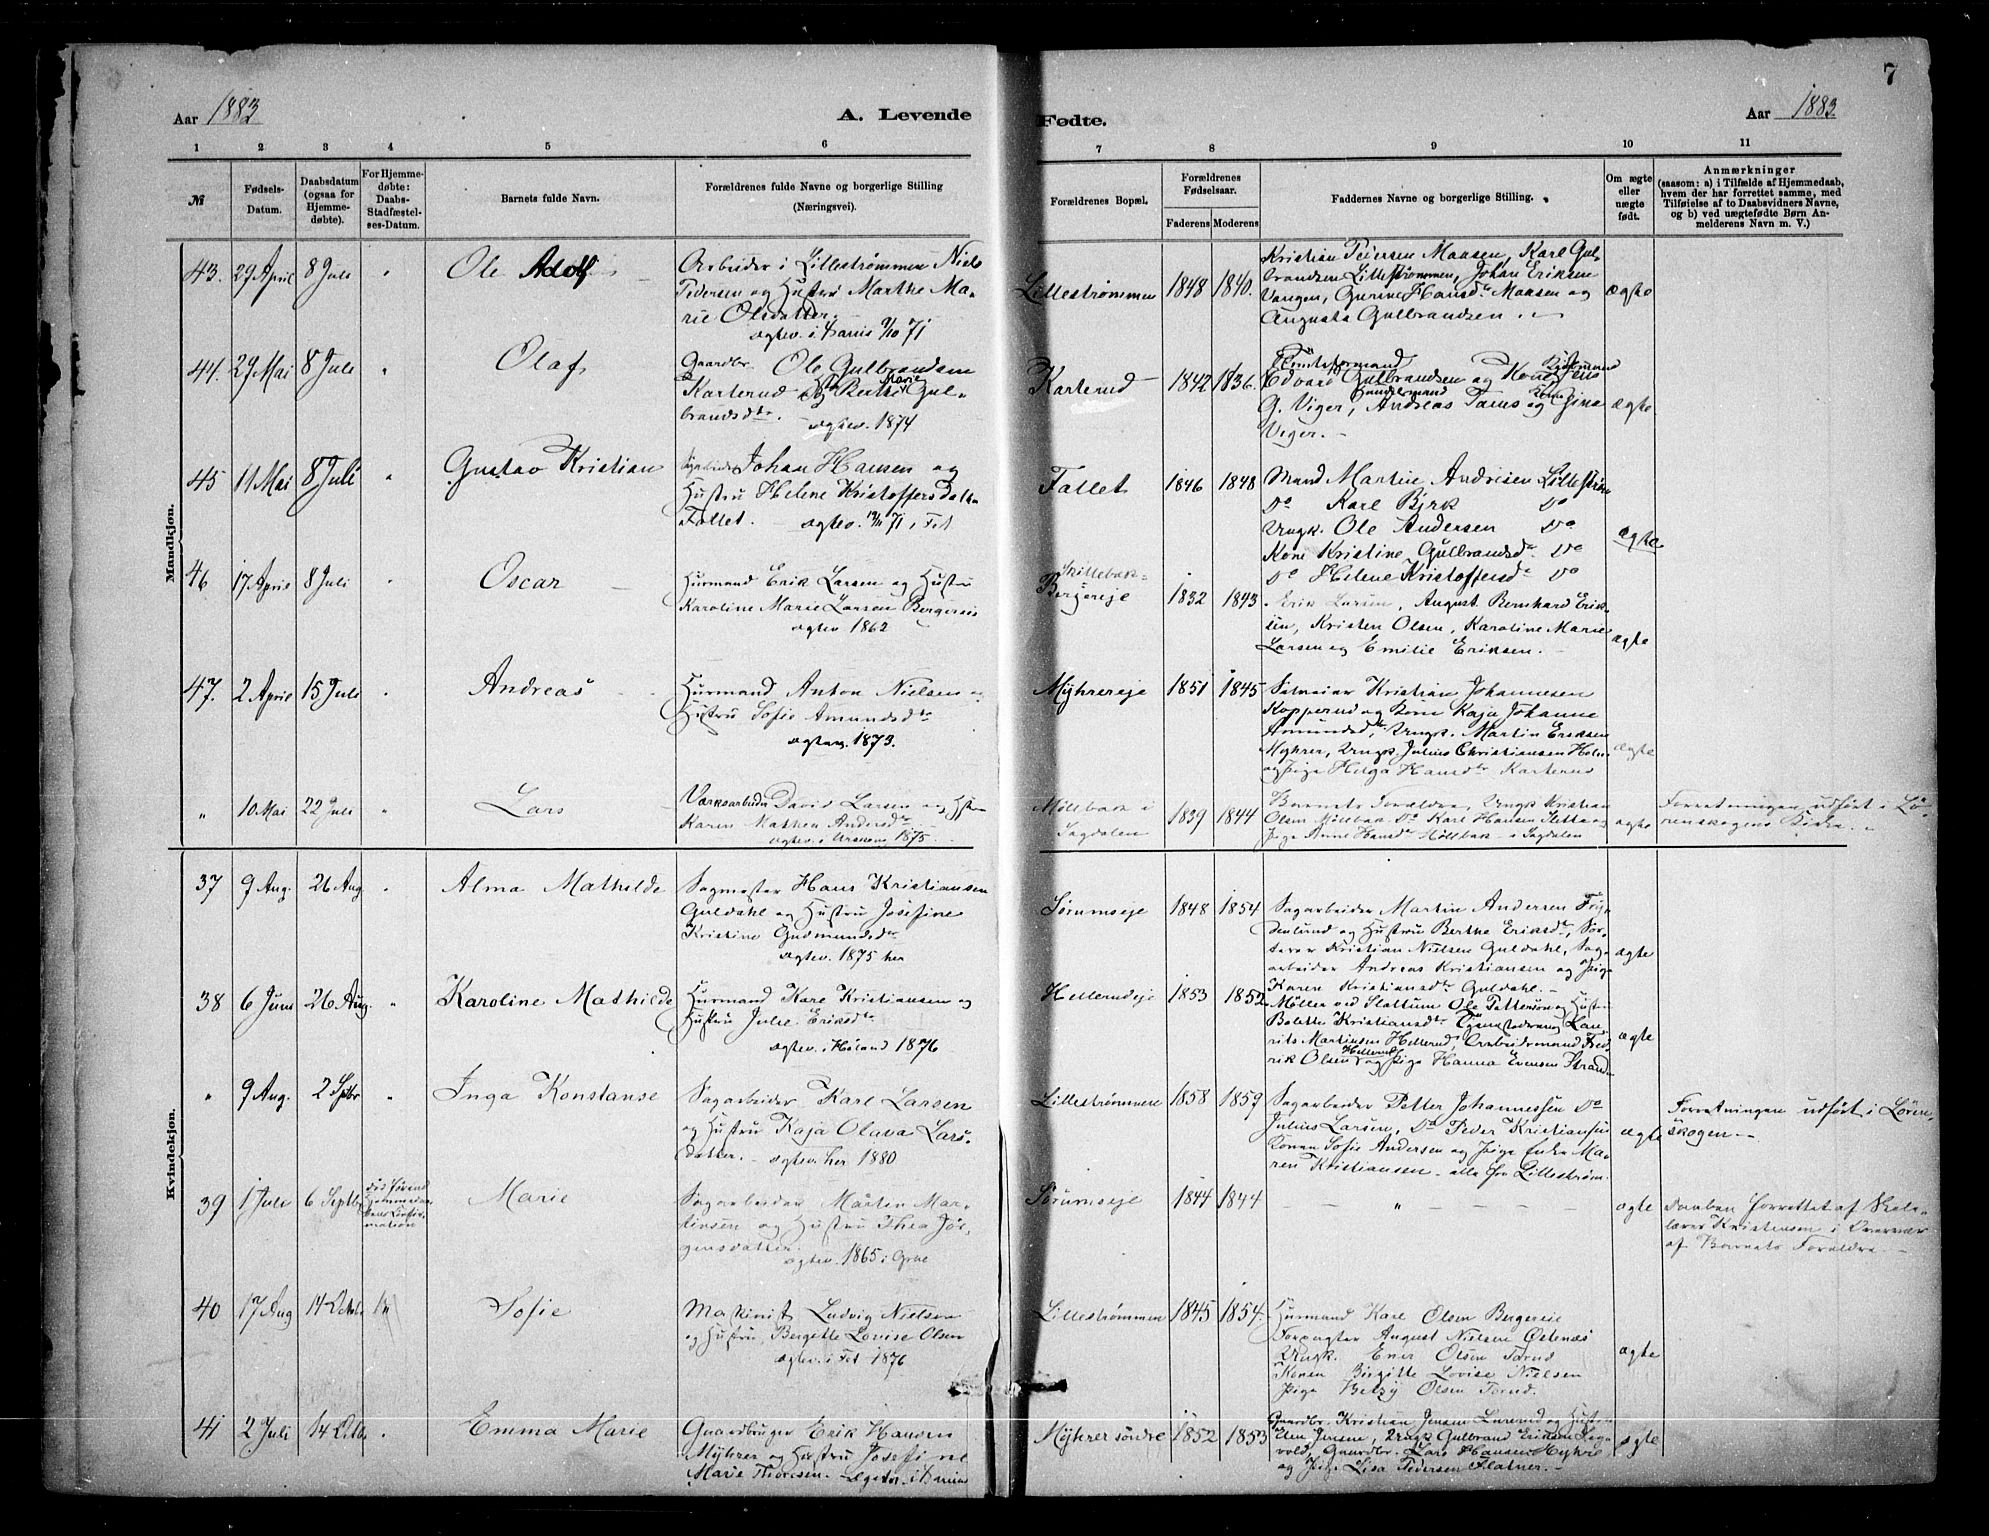 7
Aar 1883
A. Levende
Fødte.
Aar 1883.
1 2 3 4 5 6 7 8 9 10 11
№
Fødsels-
Datum.
Daabsdatum
(ogsaa for
Hjemme-
døbte).
For Hjemme-
døbte:
Daabs-
Stadfæstel-
ses-Datum.
Barnets fulde Navn.
Forældrenes fulde Navne og borgerlige Stilling
(Næringsvei).
Forældrenes Bopæl.
Forældrenes
Fødselsaar.
Faderens Moderens
Faddernes Navne og borgerlige Stilling.
Om ægte
eller
uægte
født.
Anmærkninger
(saasom: a) i Tilfælde af Hjemmedaab,
hvem der har forrettet samme, med
Tilføielse af to Daabsvidners Navne,
og b) ved uægtefødte Børn An-
melderens Navn m. V.)
Mandkjøn.
43. 29 April 8 Juli " Ole Adolf
Arbeider i Lillestrømmen Niels
Pedersen og Hustru Marthe Ma-
rie Olsdatter.
ægtev. i 9/10 71
Lillestrømmen 1848 1840.
Kristian Petersen Maasen, Karl Gul-
brandsen Lillestrømmen, Johan Eriksen
Vangen, Gurine Hansdtr Maasen og
Augusta Gulbrandsen.
ægte
44. 29 Mai 8 Juli " Olaf
Gaardbr. Ole Gulbrandsen
Karterud og Hstr Berthe Marie Gul-
brandsdtr.
ægtev. 1874
Karterud 1842 1836.
Edvard Gulbrandsen og Kone
G. Viger, Andreas Tams og Gina
Viger.
ægte
45 11 Mai 8 Juli " Gustav Kristian
Johan Hansen og
Hustru Helene Kristoffersdatter
Fallet. ægtev. 71 i Fet
Fallet 1846 1848
Mand Martin Andresen Lillestrøm
Do Karl Birk Do
Ungk. Ole Andersen Do
Kone Kristine Gulbrandsd. Do
Do Helene Kristoffersdtr Do
ægte
46 17 April 8 Juli " Oscar
Husmand Erik Larsen og Hustru
Karoline Marie Larsen Bergereie
ægtev 1862
Bergereje 1832 1843
Erik Larsen, August Bernhard Erik-
sen, Kristen Olsen, Karoline Marie
Larsen og Emilie Eriksen.
ægte
47. 2 April 15 Juli " Andreas
Husmand Anton Nielsen og
Hustru Sofie Amundsdtr
ægtev. 1873.
Myhrereje 1851 1845
Kristian Johannesen
Kopperud og Kone Kaja Johanne
Amundsdtr, Ungk. Martin Eriksen
Myhrer, Ungk. Julius Christiansen
og Pige Helga Hansdtr Karterud
ægte
" 10. Mai 22 Juli " Lars
Værksarbeider David Larsen og Hstru
Karen Mathea Andersdtr
ægtev. i Urskoug 1875
Møllbak i
Sagdalen
1839 1844
Barnets Forældre, Ungk Kristian
Olsen Møllbak, Do Karl Hansen
Pige Anne Hansdtr Møllbak i Sagdalen
ægte
Forretningen udført i Lø-
renskogens Kirke.
Kvindekjøn.
37 9 Aug. 26 Aug. " Alma Mathilde
Sagmester Hans Kristiansen
Guldahl og Hustru Josefine
Kristine Gudmundsdtr
ægtev. 1875 her
Sørumseje 1848 1854
Sagarbeider Martin Andersen
og Hustru Berthe Eriksdtr, Sor-
terer Kristian Nielsen Guldahl, Sag-
arbeider Andreas Kristiansen og Pige
Karen Kristiansdtr Guldahl.
ægte
38 6 Juni 26 Aug. " Karoline Mathilde
Husmand Karl Kristiansen og
Hustru Julie Eriksdtr
ægtev. i Høland 1876
Hellerudeje 1853 1852
Møller ved Slattum Ole Pettersen og Hustru
Bolette Kristiansdtr, Tjenestedreng Lau-
rits Martinsen Hellerud, Arbeidsmand Fred-
rik Olsen Hellerud og Pige Hanna Evensen Strand
ægte
" 9 Aug. 2 Sptbr " Inga Konstanse
Sagarbeider Karl Larsen
og Hustru Kaja Olava Lars-
datter. ægtev. her 1880
Lillestrømmen 1858 1859
Sagarbeider Petter Johannessen Do
Julius Larsen, Do Peder Kristiansen
Konen Sofie Andersen og Pige Enke Ma-
ren Kristiansen - alle fra Lillestrøm.
ægte
Forretningen udført i Løren-
skogen
39 1 Juli 6 Septbr
død førend
Hjemmedaa-
bens Confir-
mation
Marie
Sagarbeider Martin Mar-
tinsen og Hustru Thea Jør-
gensdatter.
ægtev. 1865 i
Sørumseje 1844 1844
"
ægte
Daaben forrettet af Skole-
lærer Kristensen i Overvær
af Barnets Forældre.
40 17 Aug 14 Octob. " Sofie
Maskinist Ludvig Nielsen
og Hustru Bergitte Lovise Olsen
ægtev. i Fet 1876
Lillestrømmen 1845 1854.
Husmand Karl Olsen Bergereie
Forpagter August Nielsen Østenæs
Ungk. Olsen
Konen Birgitte Lovise Nielsen
Pige Betzy Olsen
ægte
41 2 Juli 14 Octo. " Emma Marie
Gaardbruger Erik Hansen
Myhrer og Hustru Josefine
Marie Thoresen.
Myhrer søndre 1852 1853
Gaardbr. Kristian Jensen Lurerud og Hustru
Jensen, Ungk Gulbrand Eriksen
Gaardbr. Lars Hansen Myhre
og Pige Lisa Pedersen Flatner.
ægte